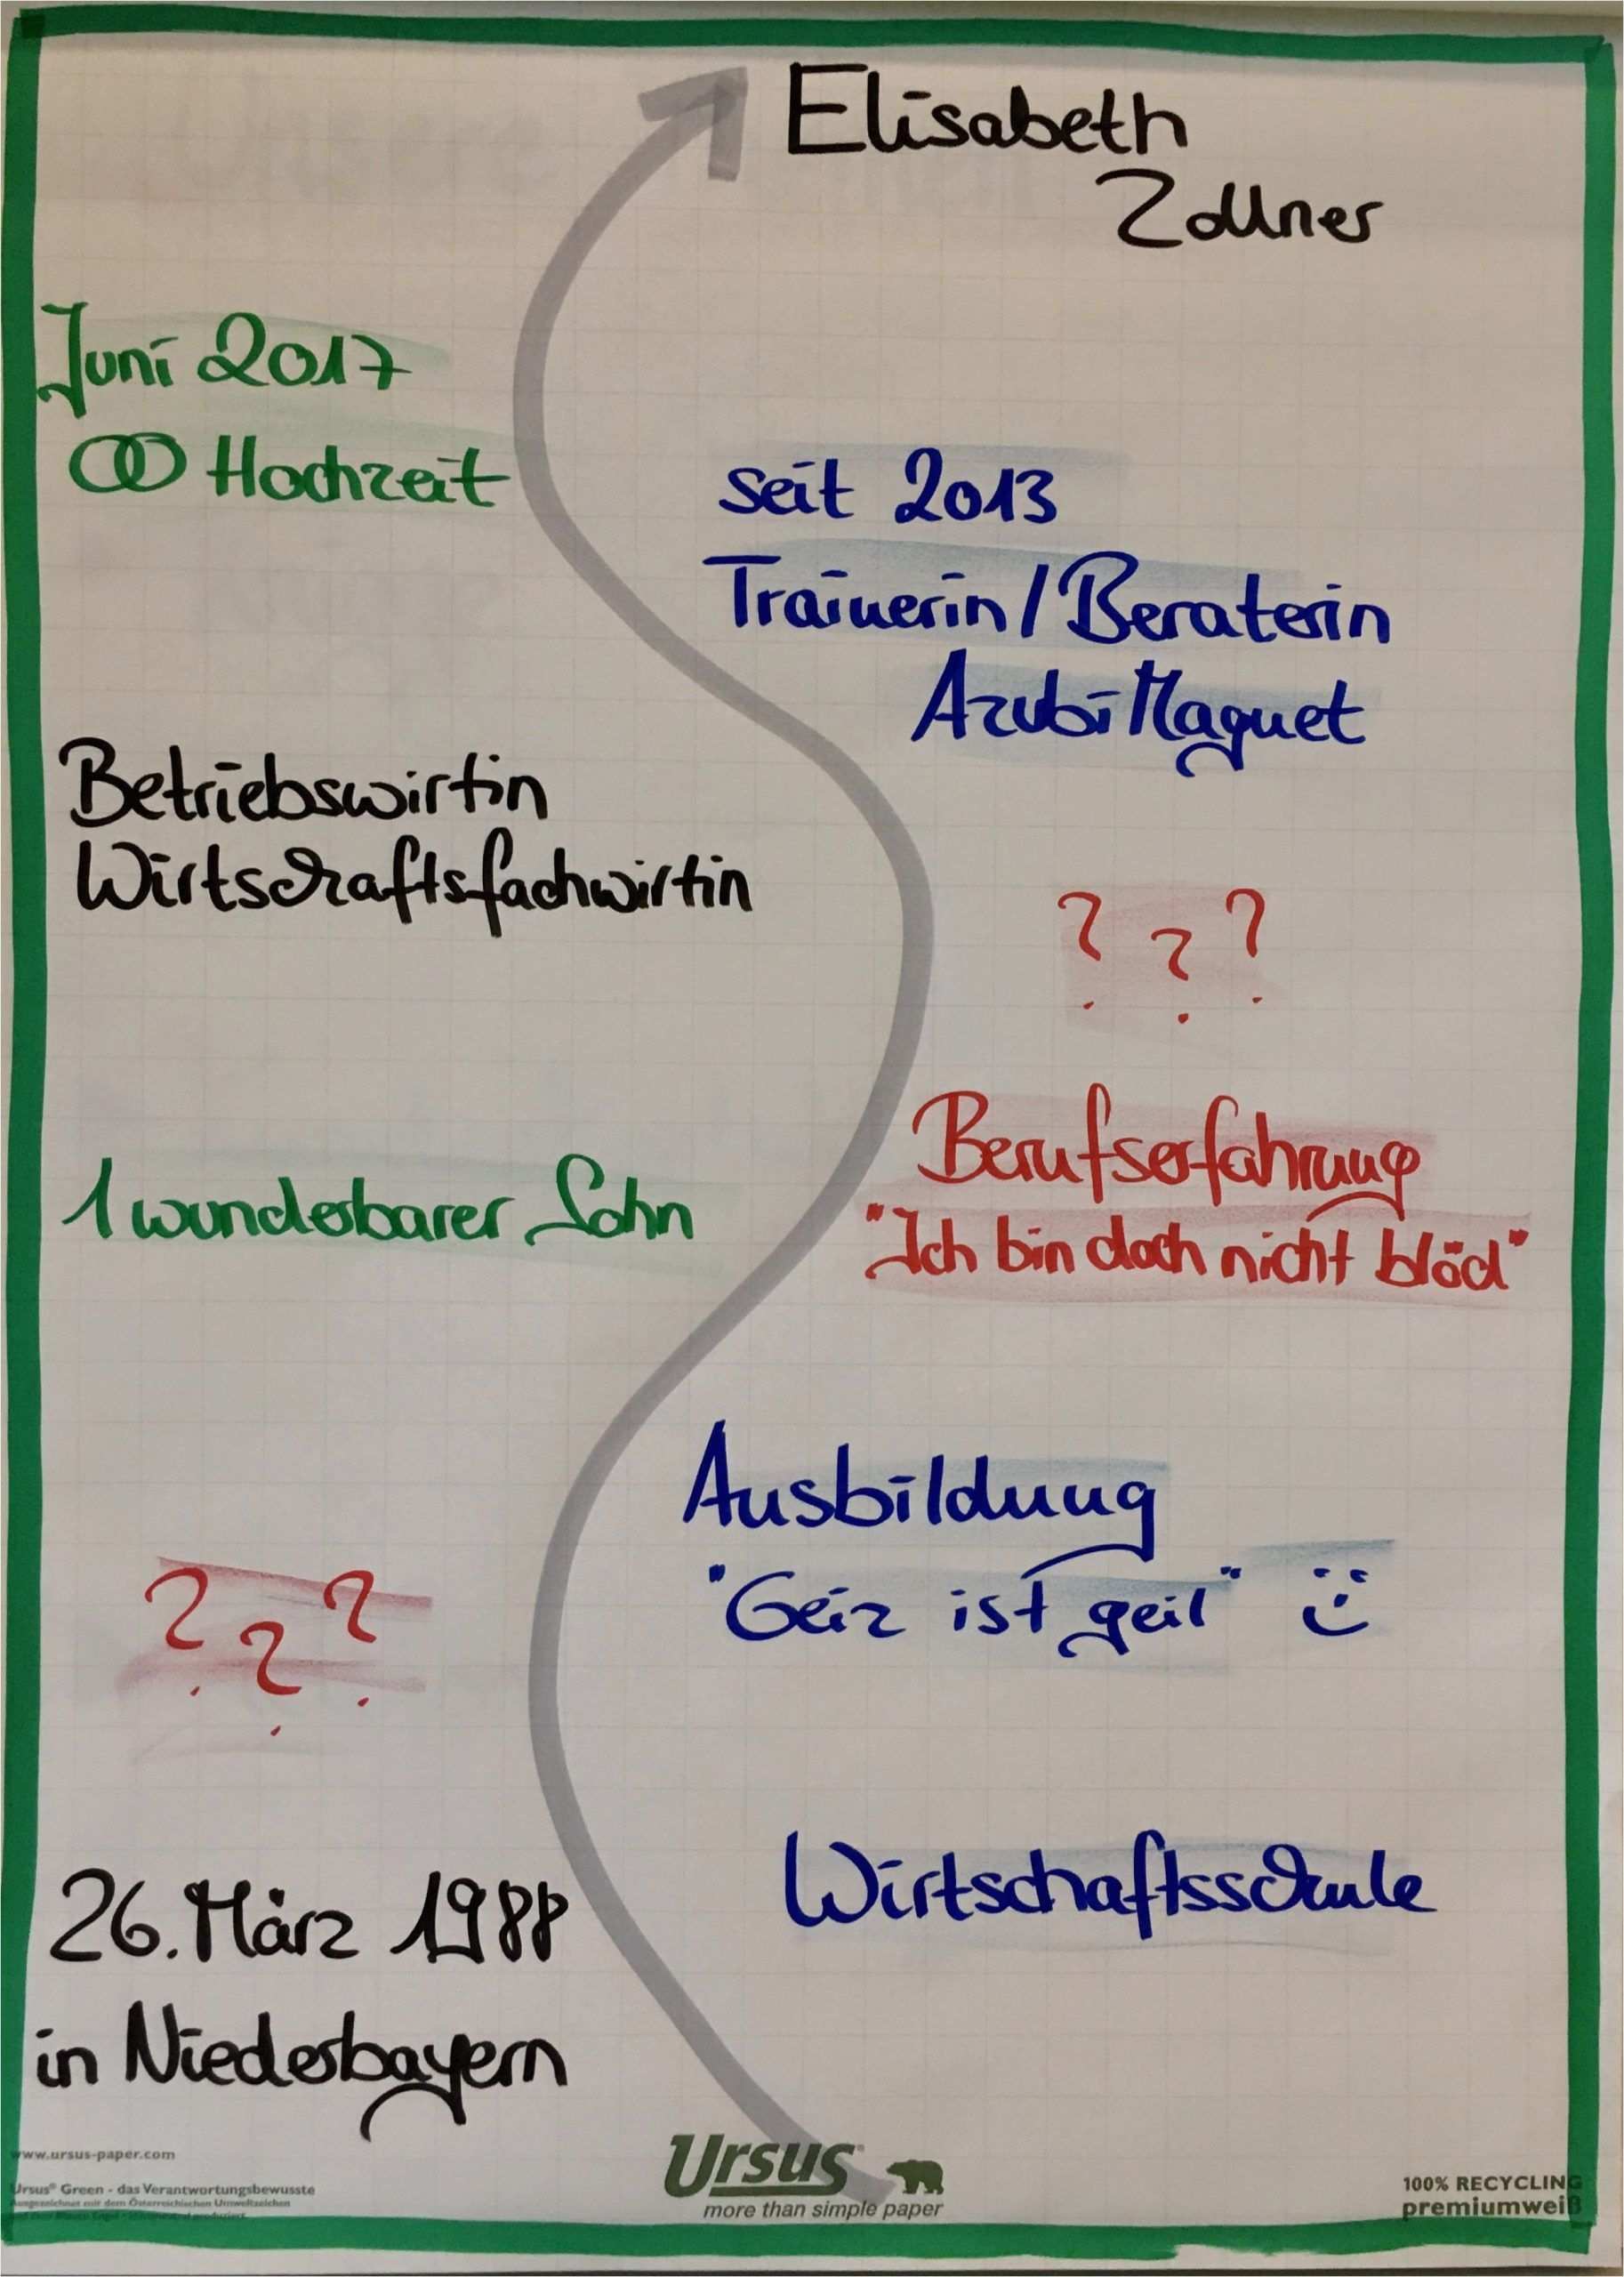 Elisabeth
Zollner
Juni 2017
Hochzeit
seit 2013
Trainerin/Beraterin
AzubiMagnet
Betriebswirtin
Wirtschaftsfachwirtin
? ? ?
Berufserfahrung
"Ich bin doch nicht blöd"
1 wunderbarer Sohn
Ausbildung
"Geiz ist geil"
? ? ?
Wirtschaftsschule
26. März 1988
in Niederbayern
www.ursus-paper.com
Ursus® Green - das Verantwortungsbewusste
Ausgezeichnet mit dem Österreichischen Umweltzeichen
Ursus
more than simple paper
100% RECYCLING
premiumweiß